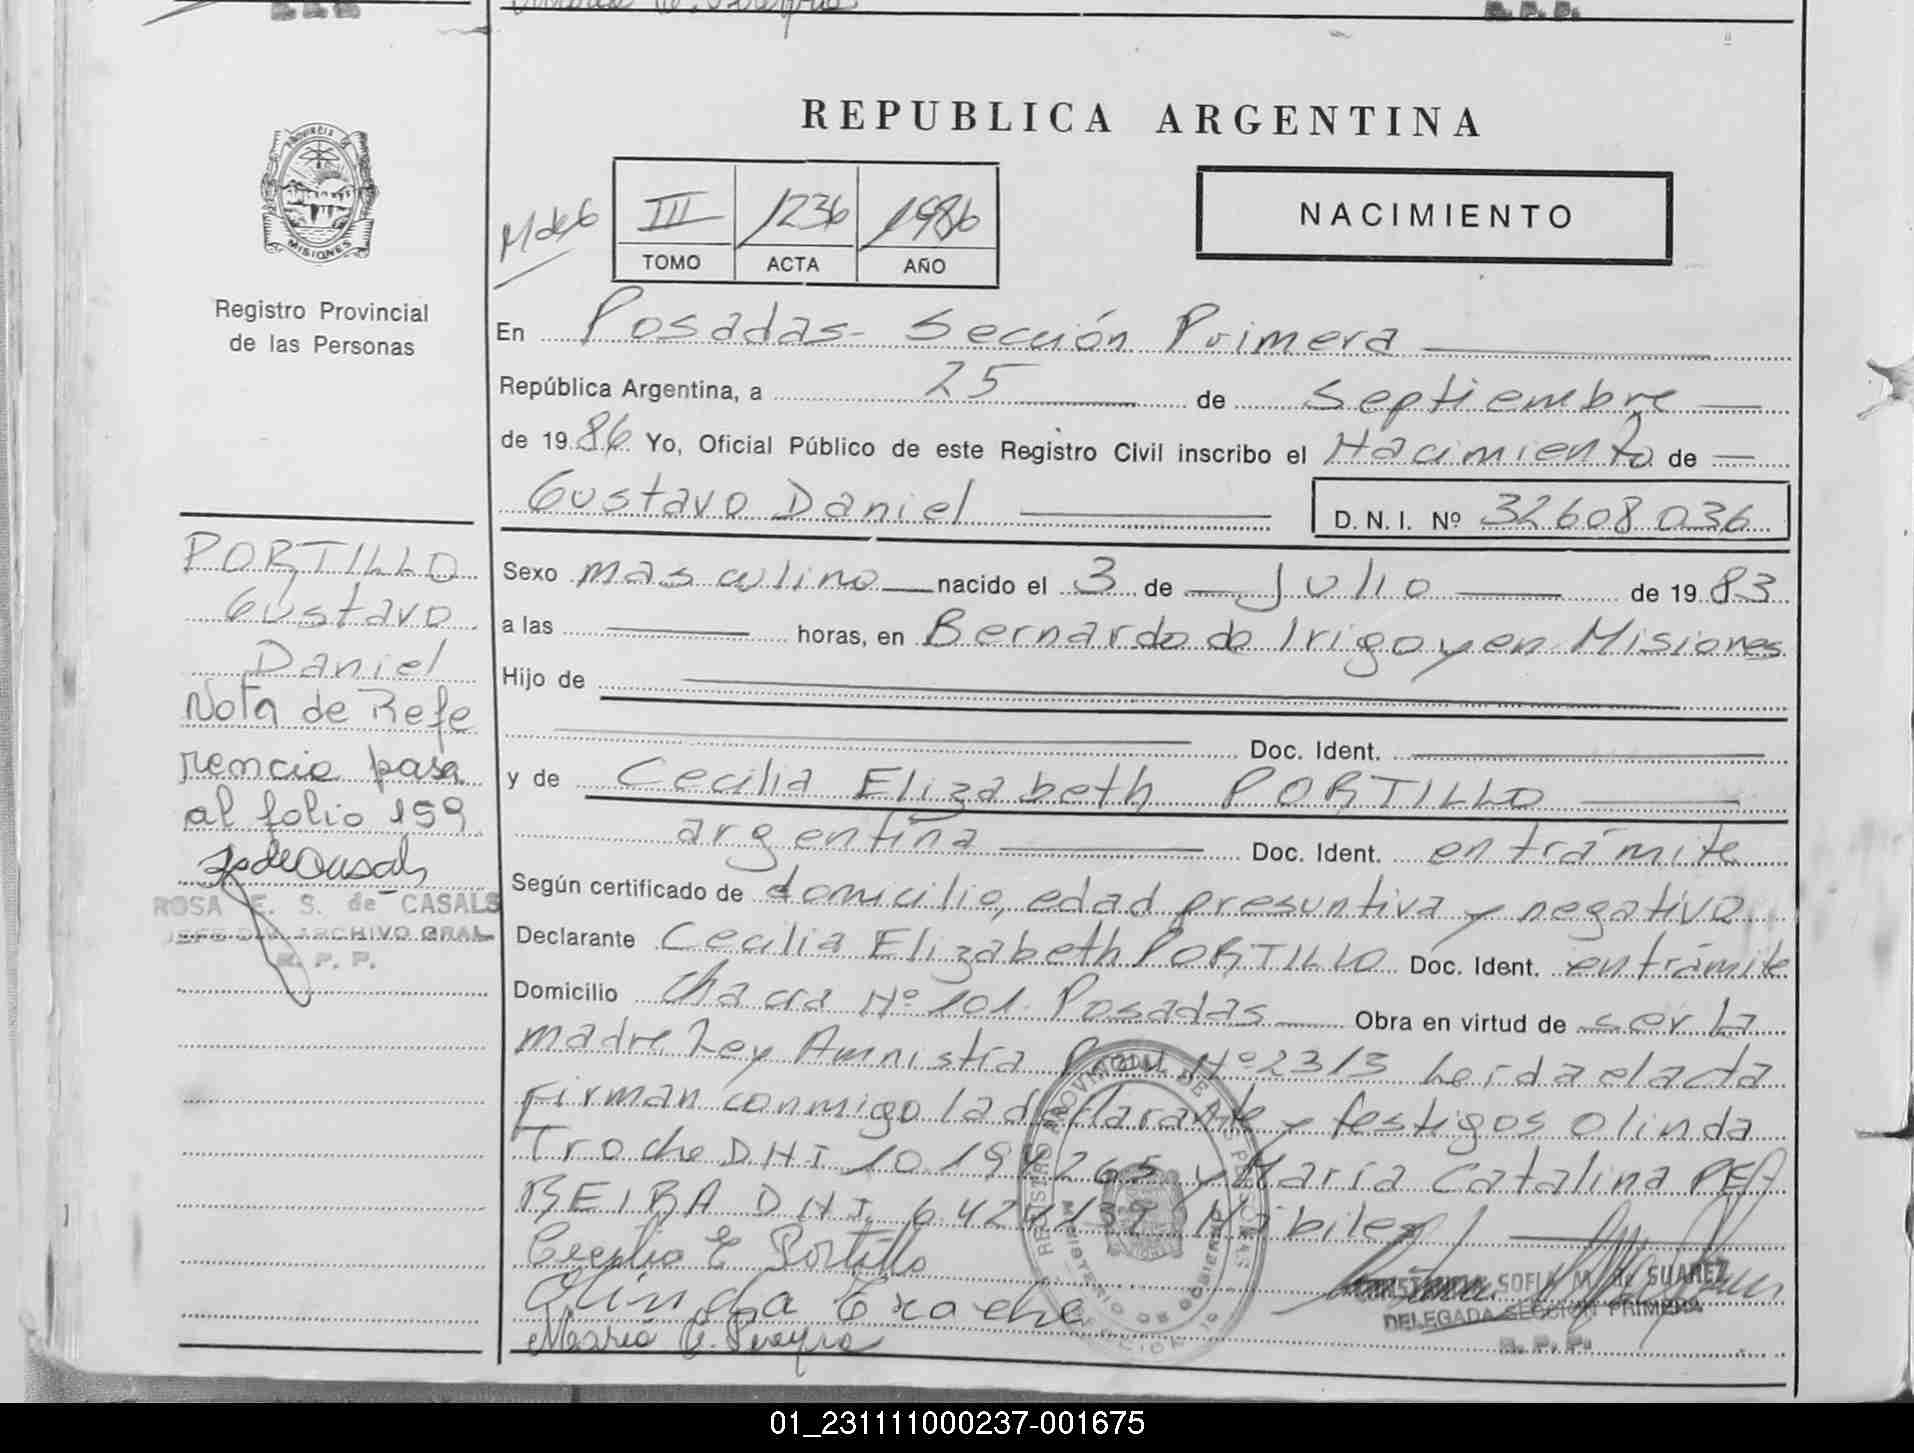 R. P. P.
REPUBLICA ARGENTINA
PROVINCIA DE
MISIONES
III 1236 1986
TOMO ACTA AÑO
NACIMIENTO
Registro Provincial
de las Personas
En Posadas - Sección Primera
República Argentina, a 25 de septiembre
de 1986 Yo, Oficial Público de este Registro Civil inscribo el Nacimiento de
Gustavo Daniel D. N. I. Nº 32608036
Sexo masculino nacido el 3 de Julio de 1983
a las horas, en Bernardo de Irigoyen Misiones
Hijo de
Doc. Ident.
y de Cecilia Elizabeth PORTILLO
argentina Doc. Ident. en trámite
Según certificado de domicilio, edad presuntiva y negativo
Declarante Cecilia Elizabeth PORTILLO Doc. Ident. en trámite
Domicilio Chacra Nº 101. Posadas Obra en virtud de ser la
madre Ley Amnistía Nº 2313 Leida el acta
Firman conmigo la declarante y testigos Olinda
Troche DNI 10.194265 y María Catalina PE
REIRA DNI Hábiles
Cecilia E Portillo
Olinda Troche
María C. Pereyra
SOFIA M. de SUAREZ
DELEGADA SECCION PRIMERA
R. P. P.
REGISTRO PROVINCIAL DE LAS PERSONAS
MINISTERIO DE GOBIERNO
PORTILLO
Gustavo
Daniel
Nota de Refe
rencia pasa
al folio 159
ROSA E. S. de CASALS
JEFE DIV. ARCHIVO GRAL.
R. P. P.
01_231111000237-001675